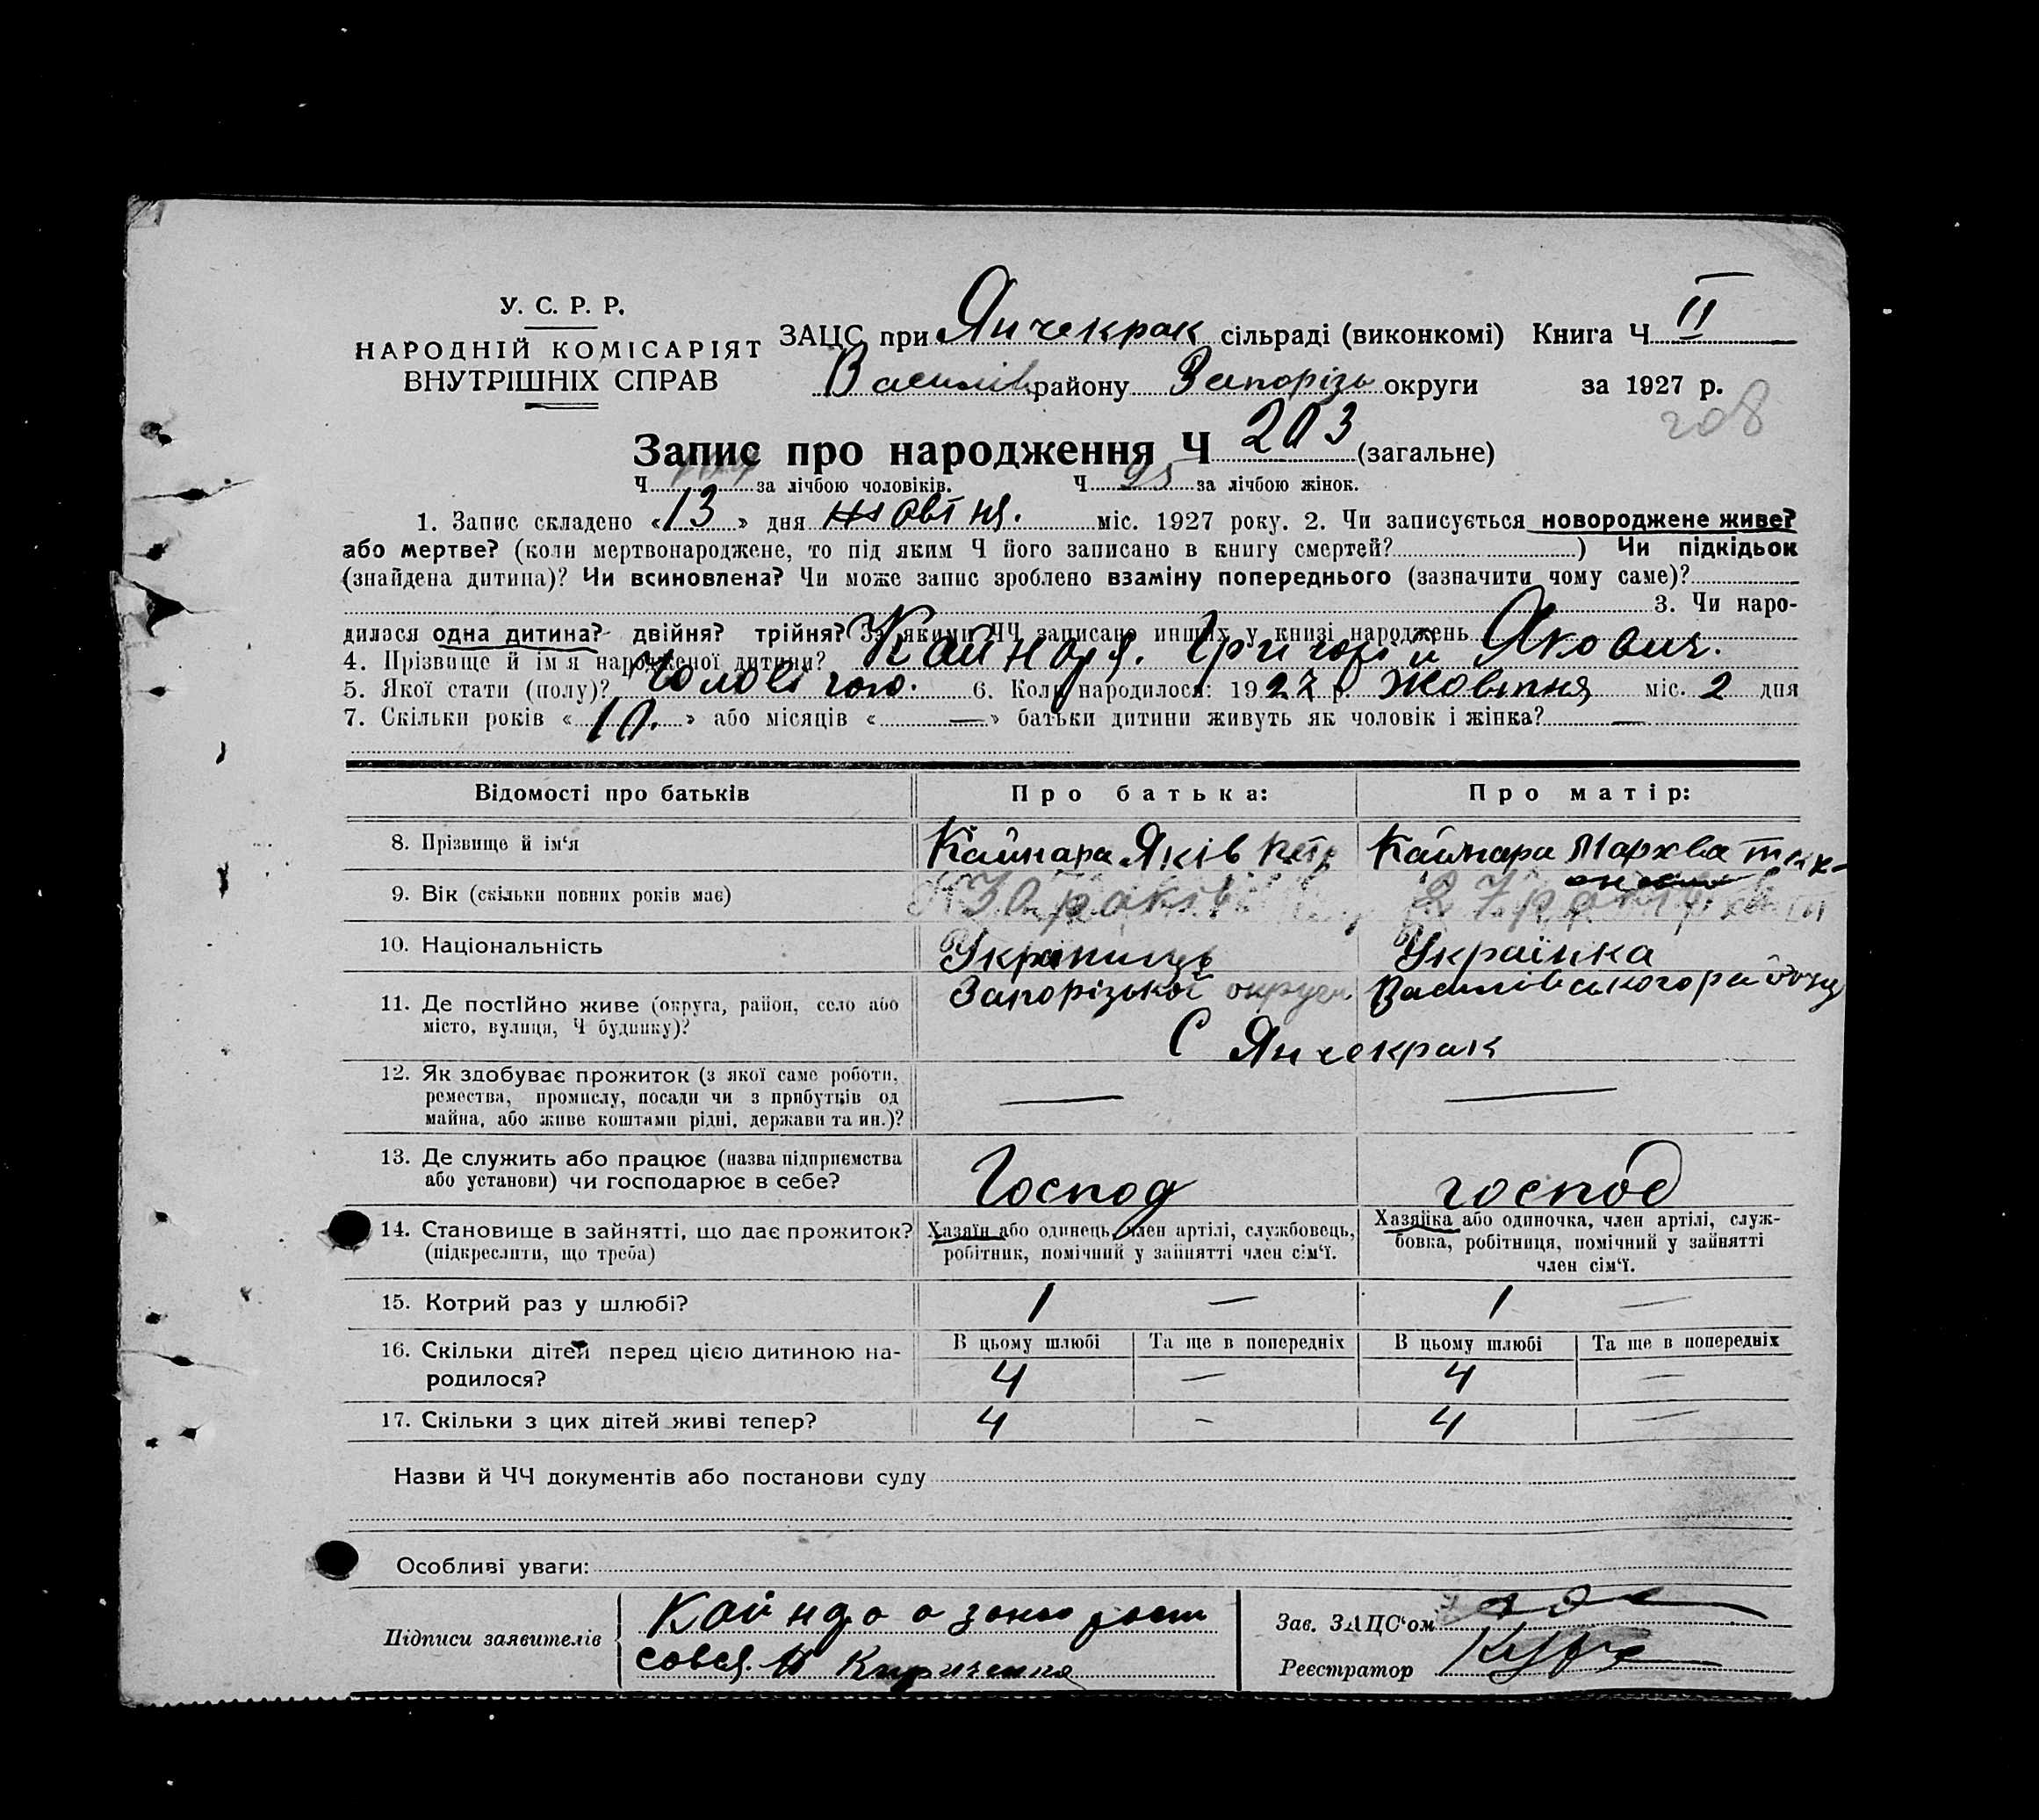 У. С. Р. Р.
НАРОДНІЙ КОМІСАРІЯТ
ВНУТРІШНІХ СПРАВ
ЗАЦС при Янчекрак сільраді (виконкомі) Книга Ч II
Василів району Запорізь округи за 1927 р.
208
Запис про народження Ч 203 (загальне)
Ч за лічбою чоловіків. Ч 95 за лічбою жінок.
1. Запис складено « 13 » дня жовтня. міс. 1927 року. 2. Чи записується новороджене живе?
або мертве? (коли мертвонароджене, то під яким Ч його записано в книгу смертей?) Чи підкідьок
(знайдена дитина)? Чи всиновлена? Чи може запис зроблено взаміну попереднього (зазначити чому саме)?
3. Чи наро-
дилася одна дитина? двійня? трійня? За якими ЧЧ записано инших у книзі народжень
4. Прізвище й ім'я народженої дитини? Кайнара. Григорій Якович.
5. Якої стати (полу)? Чоловічого. 6. Коли народилося: 1927 р. Жовтня міс. 2 дня
7. Скільки років « 10. » або місяців « — » батьки дитини живуть як чоловік і жінка? —
Відомості про батьків Про батька: Про матір:
8. Прізвище й ім'я Кайнара Яків Петр Кайнара Мархва
9. Вік (скільки повних років має) 30 років 27 років
10. Національність Українець Українка
11. Де постійно живе (округа, район, село або Запорізької округи Василівського району
місто, вулиця, Ч будинку)? С Янчекрак
12. Як здобуває прожиток (з якої саме роботи,
ремества, промислу, посади чи з прибутків од — —
майна, або живе коштами рідні, держави та ин.)?
13. Де служить або працює (назва підприємства
або установи) чи господарює в себе? Господ господ
14. Становище в зайнятті, що дає прожиток? Хазяїн або одинець, член артілі, службовець, Хазяйка або одиночка, член артілі, служ-
(підкреслити, що треба) робітник, помічний у зайнятті член сім'ї. бовка, робітниця, помічний у зайнятті
член сім'ї.
15. Котрий раз у шлюбі? 1 — 1 —
16. Скільки дітей перед цією дитиною на- В цьому шлюбі Та ще в попередніх В цьому шлюбі Та ще в попередніх
родилося? 4 — 4 —
17. Скільки з цих дітей живі тепер? 4 - 4 —
Назви й ЧЧ документів або постанови суду
Особливі уваги:
Підписи заявителів
Зав. ЗАЦС'ом
Реєстратор